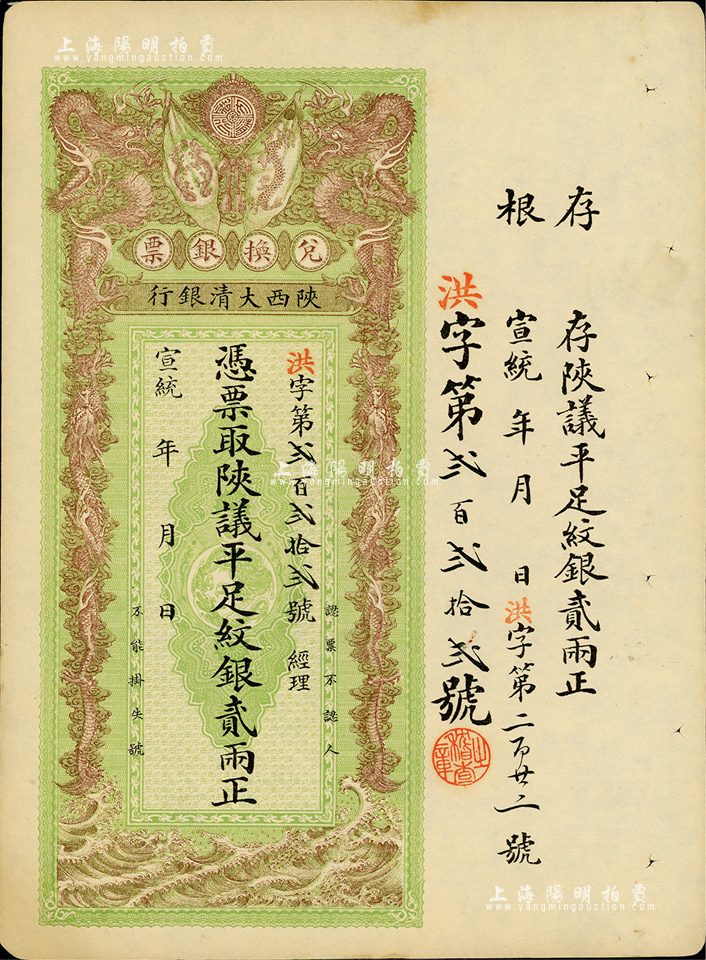 上海陽明拍賣
www.yangmingauction.com
存根
存陝議平足紋銀貳兩正
宣統 年 月 日 洪字第二百廿二號
洪字第弍百弍拾弍號
兌換銀票
陝西大清銀行
認票不認人
洪字第弍百弍拾弍號 經理
憑票取陝議平足紋銀貳兩正
宣統 年 月 日
不能掛失號
上海陽明拍賣
www.yangmingauction.com
上海陽明拍賣
www.yangmingauction.com